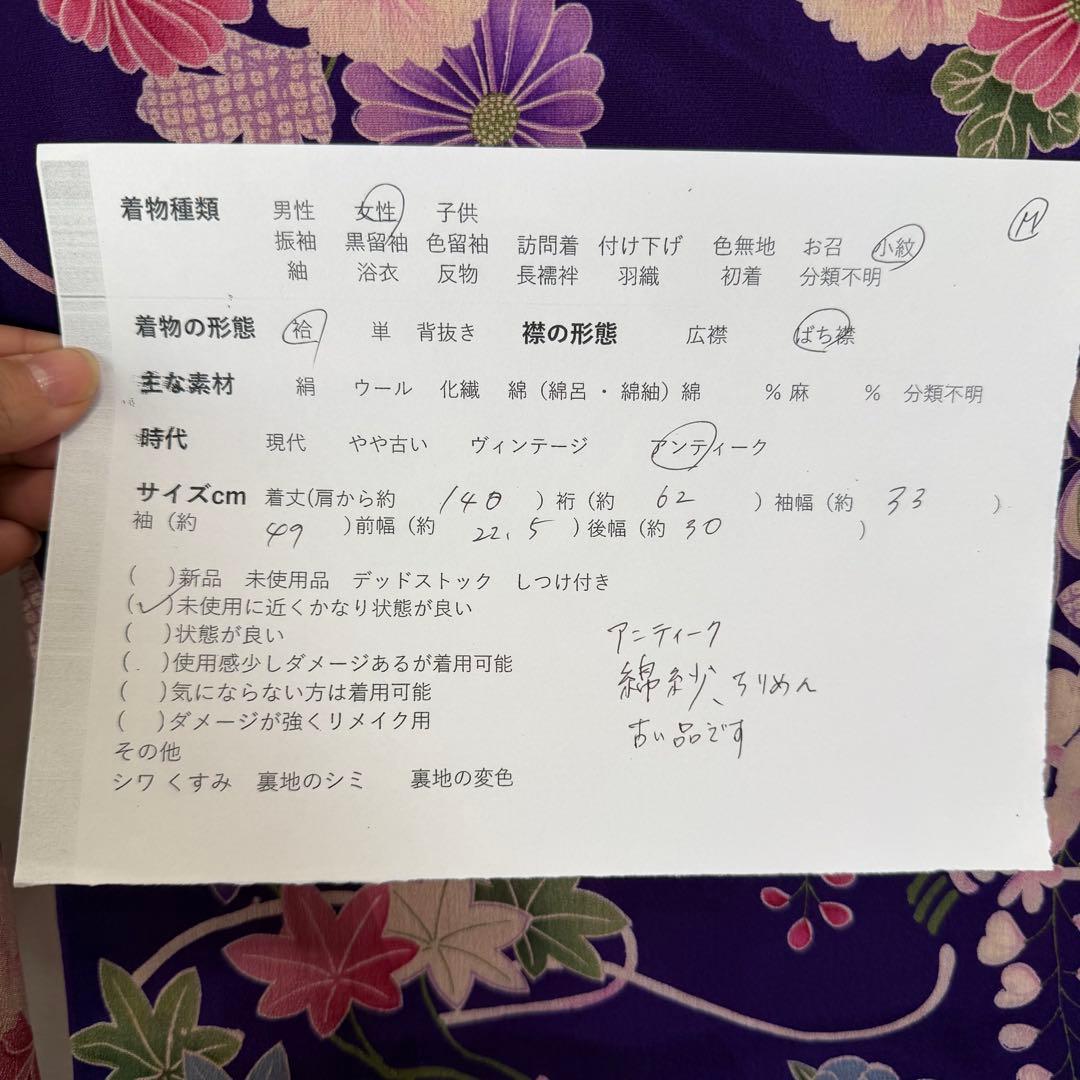 着物種類 男性 女性 子供 M
振袖 黒留袖 色留袖 訪問着 付け下げ 色無地 お召 小紋
紬 浴衣 反物 長襦袢 羽織 初着 分類不明
着物の形態 袷 単 背抜き 襟の形態 広襟 ばち襟
主な素材 絹 ウール 化繊 綿（綿呂・綿紬）綿 ％麻 ％ 分類不明
時代 現代 やや古い ヴィンテージ アンティーク
サイズcm 着丈(肩から約 140 ）裄（約 62 ）袖幅（約 33 ）
袖（約 49 ）前幅（約 22.5 ）後幅（約 30 ）
( )新品 未使用品 デッドストック しつけ付き
(✓)未使用に近くかなり状態が良い
( )状態が良い
( )使用感少しダメージあるが着用可能
( )気にならない方は着用可能
( )ダメージが強くリメイク用
その他
シワ くすみ 裏地のシミ 裏地の変色
アンティーク
綿紗、ちりめん
古い品です